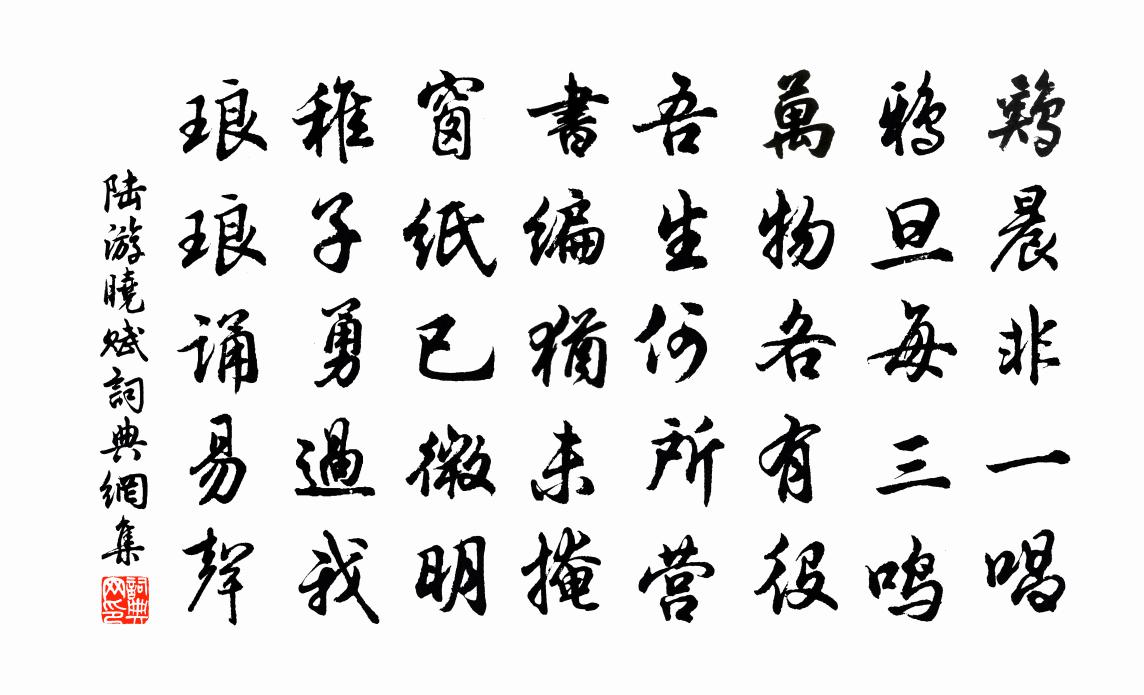 鷄晨非一唱
鴉旦每三鳴
萬物各有役
吾生何所营
書編猶未掩
窗紙已微明
稚子勇過我
琅琅誦易聲
陸游曉賦詞典網集
詞典网印